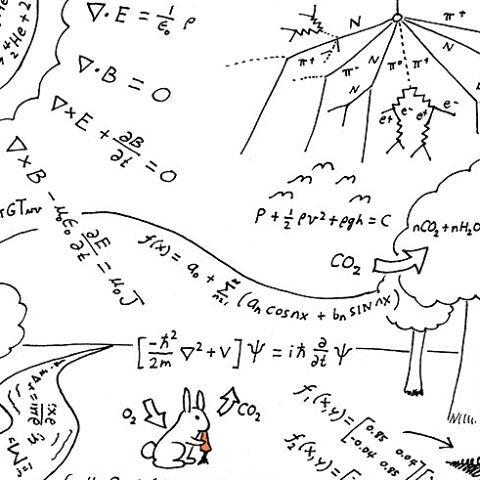 ∇·E = 1/ε₀ ρ
∇·B = 0
∇×E + ∂B/∂t = 0
∇×B − μ₀ε₀ ∂E/∂t = μ₀J
⁴₂He + 2
N
π⁺
N
N
π⁺
π⁻
N
π⁰
π⁺
N
e⁺
e⁻
e⁺
e⁻
P + ½ρv² + ρgh = C
CO₂
nCO₂ + nH₂O
GTμν
f(x) = a₀ + ∞Σn=1 (aₙ cos nx + bₙ SIN nx)
[−ħ²/2m ∇² + V] Ψ = iħ ∂/∂t Ψ
O₂
CO₂
f₁(x,y) = [0.85 0.04
−0.04 0.85
f₂(x,y) = [